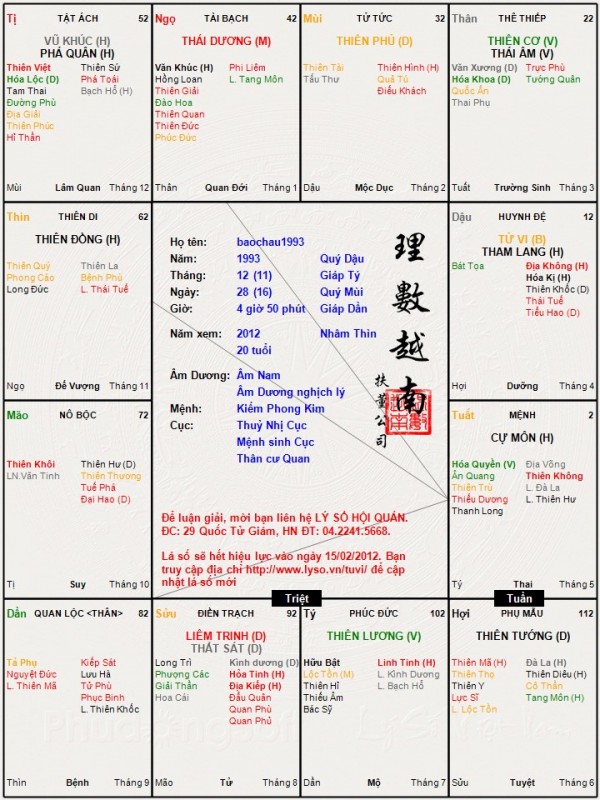 Tị TẬT ÁCH 52
VŨ KHÚC (H)
PHÁ QUÂN (H)
Thiên Việt Thiên Sứ
Hóa Lộc (D) Phá Toái
Tam Thai Bạch Hổ (H)
Đường Phù
Địa Giải
Thiên Phúc
Hỉ Thần
Mùi Lâm Quan Tháng 12
Ngọ TÀI BẠCH 42
THÁI DƯƠNG (M)
Văn Khúc (H) Phi Liêm
Hồng Loan L. Tang Môn
Thiên Giải
Đào Hoa
Thiên Quan
Thiên Đức
Phúc Đức
Thân Quan Đới Tháng 1
Mùi TỬ TỨC 32
THIÊN PHỦ (D)
Thiên Tài Thiên Hình (H)
Tấu Thư Quả Tú
Điếu Khách
Dậu Mộc Dục Tháng 2
Thân THÊ THIẾP 22
THIÊN CƠ (V)
THÁI ÂM (V)
Văn Xương (D) Trực Phù
Hóa Khoa (D) Tướng Quân
Quốc Ấn
Thai Phụ
Tuất Trường Sinh Tháng 3
Thìn THIÊN DI 62
THIÊN ĐỒNG (H)
Thiên Quý Thiên La
Phong Cáo Bệnh Phù
Long Đức L. Thái Tuế
Ngọ Đế Vượng Tháng 11
Họ tên: baochau1993
Năm: 1993 Quý Dậu
Tháng: 12 (11) Giáp Tý
Ngày: 28 (16) Quý Mùi
Giờ: 4 giờ 50 phút Giáp Dần
Năm xem: 2012 Nhâm Thìn
20 tuổi
Âm Dương: Âm Nam
Âm Dương nghịch lý
Mệnh: Kiếm Phong Kim
Cục: Thuỷ Nhị Cục
Mệnh sinh Cục
Thân cư Quan
理數越南
扶董公司
Để luận giải, mời bạn liên hệ LÝ SỐ HỘI QUÁN.
ĐC: 29 Quốc Tử Giám, HN ĐT: 04.2241.5668.
Lá số sẽ hết hiệu lực vào ngày 15/02/2012. Bạn
truy cập địa chỉ http://www.lyso.vn/tuvi/ để cập
nhật lá số mới
Dậu HUYNH ĐỆ 12
TỬ VI (B)
THAM LANG (H)
Bát Tọa Địa Không (H)
Hóa Kị (H)
Thiên Khốc (D)
Thái Tuế
Tiểu Hao (D)
Hợi Dưỡng Tháng 4
Mão NÔ BỘC 72
Thiên Khôi Thiên Hư (D)
LN.Văn Tinh Thiên Thương
Tuế Phá
Đại Hao (D)
Tị Suy Tháng 10
Tuất MỆNH 2
CỰ MÔN (H)
Hóa Quyền (V) Địa Võng
Ân Quang Thiên Không
Thiên Trù L. Đà La
Thiếu Dương L. Thiên Hư
Thanh Long
Tý Thai Tháng 5
Triệt
Tuần
Dần QUAN LỘC <THÂN> 82
Tả Phụ Kiếp Sát
Nguyệt Đức Lưu Hà
L. Thiên Mã Tử Phù
Phục Binh
L. Thiên Khốc
Thìn Bệnh Tháng 9
Sửu ĐIỀN TRẠCH 92
LIÊM TRINH (D)
THẤT SÁT (D)
Long Trì Kình dương (D)
Phượng Các Hỏa Tinh (H)
Giải Thần Địa Kiếp (H)
Hoa Cái Đẩu Quân
Quan Phù
Quan Phủ
Mão Tử Tháng 8
Tý PHÚC ĐỨC 102
THIÊN LƯƠNG (V)
Hữu Bật Linh Tinh (H)
Lộc Tồn (M) L. Kình Dương
Thiên Hỉ L. Bạch Hổ
Thiếu Âm
Bác Sỹ
Dần Mộ Tháng 7
Hợi PHỤ MẪU 112
THIÊN TƯỚNG (D)
Thiên Mã (H) Đà La (H)
Thiên Thọ Thiên Diêu (H)
Thiên Y Cô Thần
Lực Sĩ Tang Môn (H)
L. Lộc Tồn
Sửu Tuyệt Tháng 6